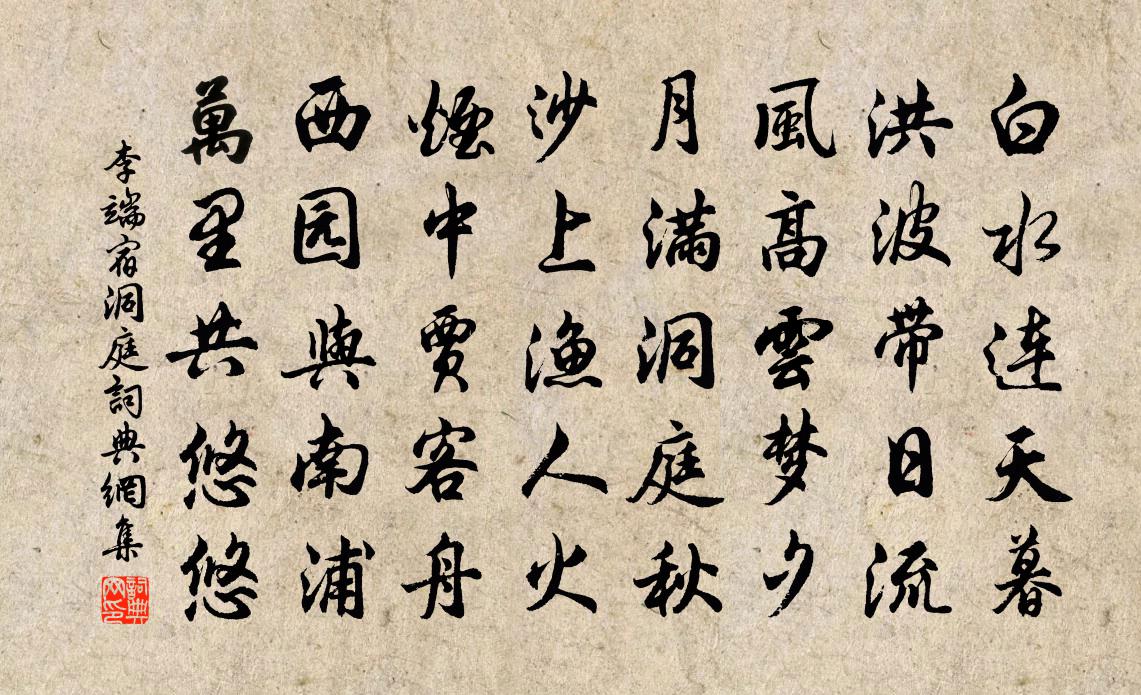 白水連天暮
洪波帶日流
風高雲梦夕
月滿洞庭秋
沙上漁人火
煙中賈客舟
西园與南浦
萬里共悠悠
李端宿洞庭詞典網集
詞典
网印